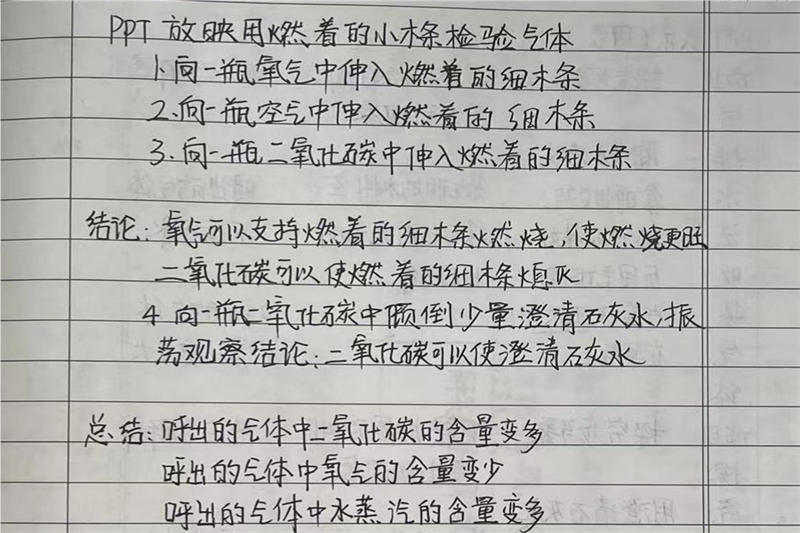 PPT 放映用燃着的小木条检验气体
1.向一瓶氧气中伸入燃着的细木条
2.向一瓶空气中伸入燃着的 细木条
3.向一瓶二氧化碳中伸入燃着的细木条
结论:氧气可以支持燃着的细木条燃烧,使燃烧更旺
二氧化碳可以使燃着的细木条熄灭
4 向一瓶二氧化碳中倾倒少量澄清石灰水,振
荡观察结论:二氧化碳可以使澄清石灰水
总结:呼出的气体中二氧化碳的含量变多
呼出的气体中氧气的含量变少
呼出的气体中水蒸汽的含量变多